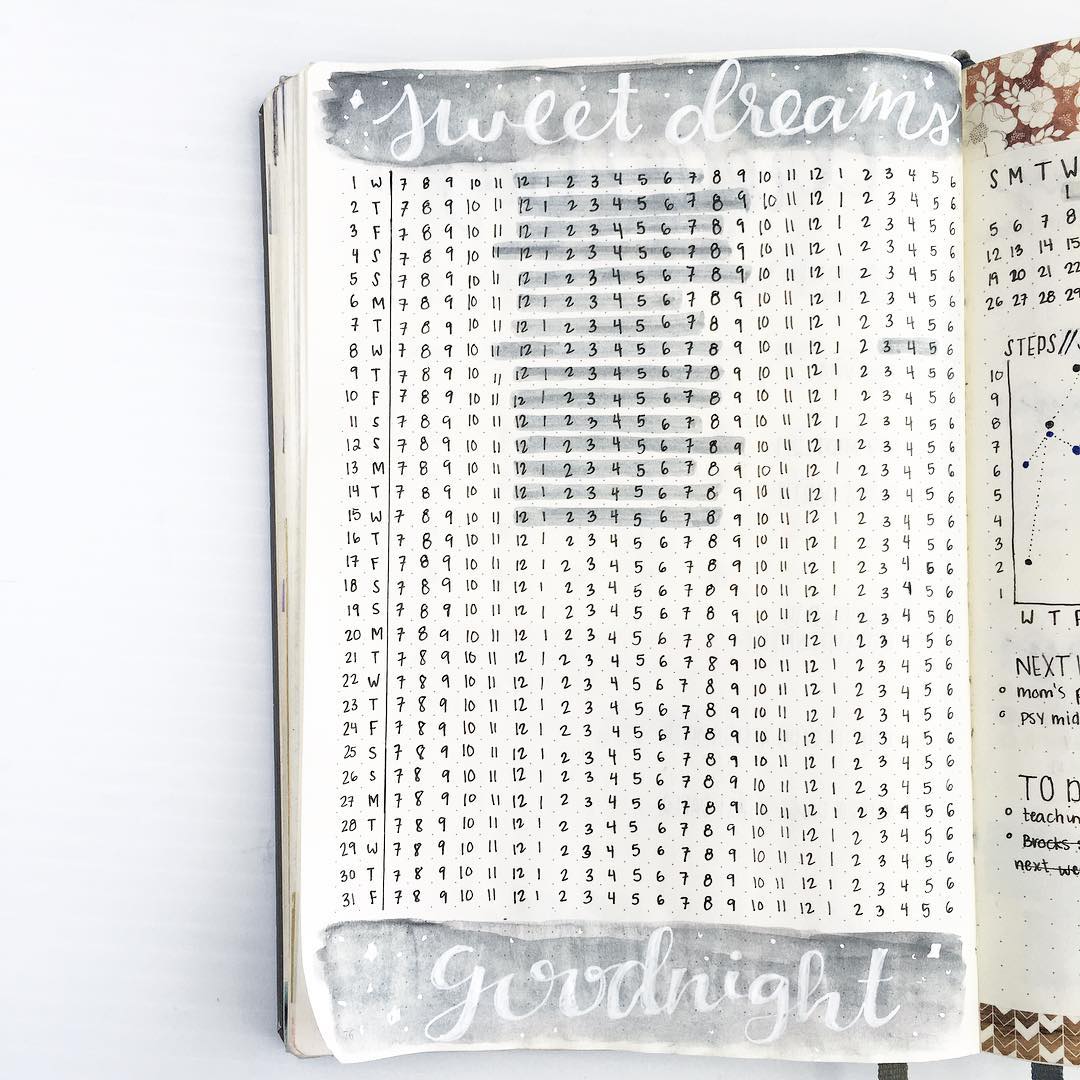 sweet dreams
1 W 7 8 9 10 11 12 1 2 3 4 5 6 7 8 9 10 11 12 1 2 3 4 5 6
2 T 7 8 9 10 11 12 1 2 3 4 5 6 7 8 9 10 11 12 1 2 3 4 5 6
3 F 7 8 9 10 11 12 1 2 3 4 5 6 7 8 9 10 11 12 1 2 3 4 5 6
4 S 7 8 9 10 11 12 1 2 3 4 5 6 7 8 9 10 11 12 1 2 3 4 5 6
5 S 7 8 9 10 11 12 1 2 3 4 5 6 7 8 9 10 11 12 1 2 3 4 5 6
6 M 7 8 9 10 11 12 1 2 3 4 5 6 7 8 9 10 11 12 1 2 3 4 5 6
7 T 7 8 9 10 11 12 1 2 3 4 5 6 7 8 9 10 11 12 1 2 3 4 5 6
8 W 7 8 9 10 11 12 1 2 3 4 5 6 7 8 9 10 11 12 1 2 3 4 5 6
9 T 7 8 9 10 11 12 1 2 3 4 5 6 7 8 9 10 11 12 1 2 3 4 5 6
10 F 7 8 9 10 11 12 1 2 3 4 5 6 7 8 9 10 11 12 1 2 3 4 5 6
11 S 7 8 9 10 11 12 1 2 3 4 5 6 7 8 9 10 11 12 1 2 3 4 5 6
12 S 7 8 9 10 11 12 1 2 3 4 5 6 7 8 9 10 11 12 1 2 3 4 5 6
13 M 7 8 9 10 11 12 1 2 3 4 5 6 7 8 9 10 11 12 1 2 3 4 5 6
14 T 7 8 9 10 11 12 1 2 3 4 5 6 7 8 9 10 11 12 1 2 3 4 5 6
15 W 7 8 9 10 11 12 1 2 3 4 5 6 7 8 9 10 11 12 1 2 3 4 5 6
16 T 7 8 9 10 11 12 1 2 3 4 5 6 7 8 9 10 11 12 1 2 3 4 5 6
17 F 7 8 9 10 11 12 1 2 3 4 5 6 7 8 9 10 11 12 1 2 3 4 5 6
18 S 7 8 9 10 11 12 1 2 3 4 5 6 7 8 9 10 11 12 1 2 3 4 5 6
19 S 7 8 9 10 11 12 1 2 3 4 5 6 7 8 9 10 11 12 1 2 3 4 5 6
20 M 7 8 9 10 11 12 1 2 3 4 5 6 7 8 9 10 11 12 1 2 3 4 5 6
21 T 7 8 9 10 11 12 1 2 3 4 5 6 7 8 9 10 11 12 1 2 3 4 5 6
22 W 7 8 9 10 11 12 1 2 3 4 5 6 7 8 9 10 11 12 1 2 3 4 5 6
23 T 7 8 9 10 11 12 1 2 3 4 5 6 7 8 9 10 11 12 1 2 3 4 5 6
24 F 7 8 9 10 11 12 1 2 3 4 5 6 7 8 9 10 11 12 1 2 3 4 5 6
25 S 7 8 9 10 11 12 1 2 3 4 5 6 7 8 9 10 11 12 1 2 3 4 5 6
26 S 7 8 9 10 11 12 1 2 3 4 5 6 7 8 9 10 11 12 1 2 3 4 5 6
27 M 7 8 9 10 11 12 1 2 3 4 5 6 7 8 9 10 11 12 1 2 3 4 5 6
28 T 7 8 9 10 11 12 1 2 3 4 5 6 7 8 9 10 11 12 1 2 3 4 5 6
29 W 7 8 9 10 11 12 1 2 3 4 5 6 7 8 9 10 11 12 1 2 3 4 5 6
30 T 7 8 9 10 11 12 1 2 3 4 5 6 7 8 9 10 11 12 1 2 3 4 5 6
31 F 7 8 9 10 11 12 1 2 3 4 5 6 7 8 9 10 11 12 1 2 3 4 5 6
goodnight
76
S M T W
1
5 6 7 8
12 13 14 15
19 20 21 22
26 27 28 29
STEPS//
10
9
8
7
6
5
4
3
2
1
W T
NEXT
mom's
psy mid
TO
Brocks
next